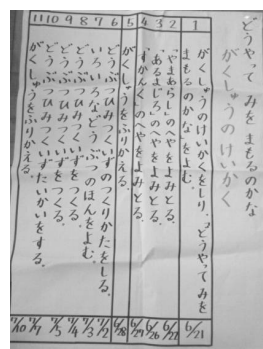 どうやって みを まもるのかな
がくしゅうのけいかく
1
がくしゅうのけいかくをしり、「どうやってみを
まもるのかな」をよむ。
6/21
2
「やまあらし」のへやをよみとる。
6/22
3
「あるまじろ」のへやをよみとる。
6/26
4
「すかんく」のへやをよみとる。
6/27
5
がくしゅうをふりかえる。
6/28
6
どうぶつひみつくいずのつくりかたをしる。
7/2
7
いろいろなどうぶつのほんをよむ。
7/3
8
どうぶつひみつくいずをつくる。
7/4
9
どうぶつひみつくいずをつくる。
7/5
10
どうぶつひみつくいずたいかいをする。
11
がくしゅうをふりかえる。
7/10